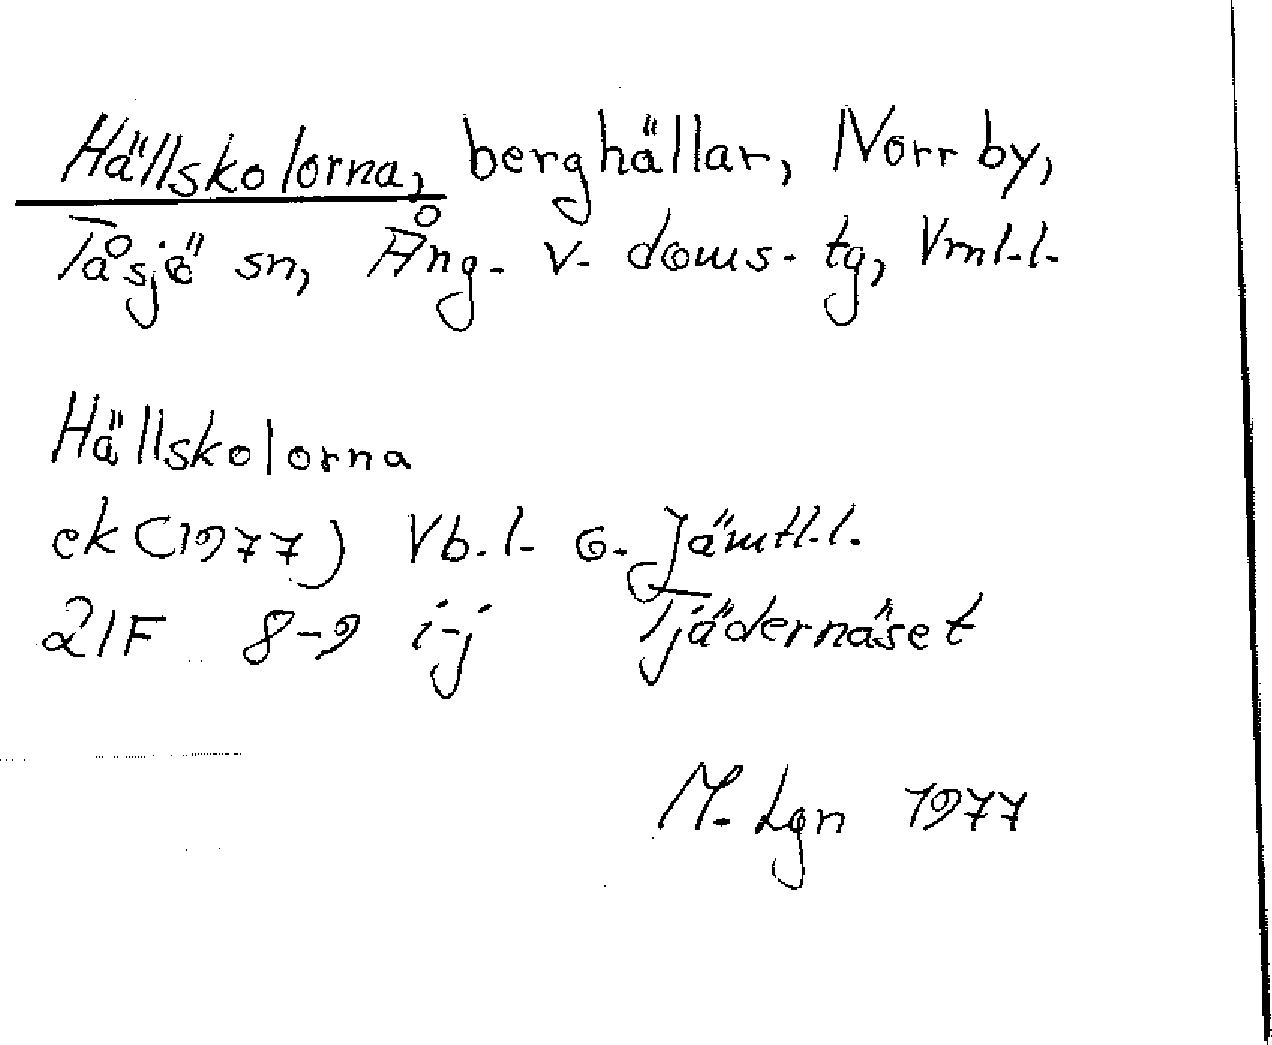 Hällskolorna, berghällar, Norrby,
Tåsjö sn, Ång. v. doms. tg, Vrnl.l.
Hällskolorna
ek (1977) Vb.l. o. Jämtl.l.
21F 8-9 i-j Tjädernäset
M. Lgn 1977